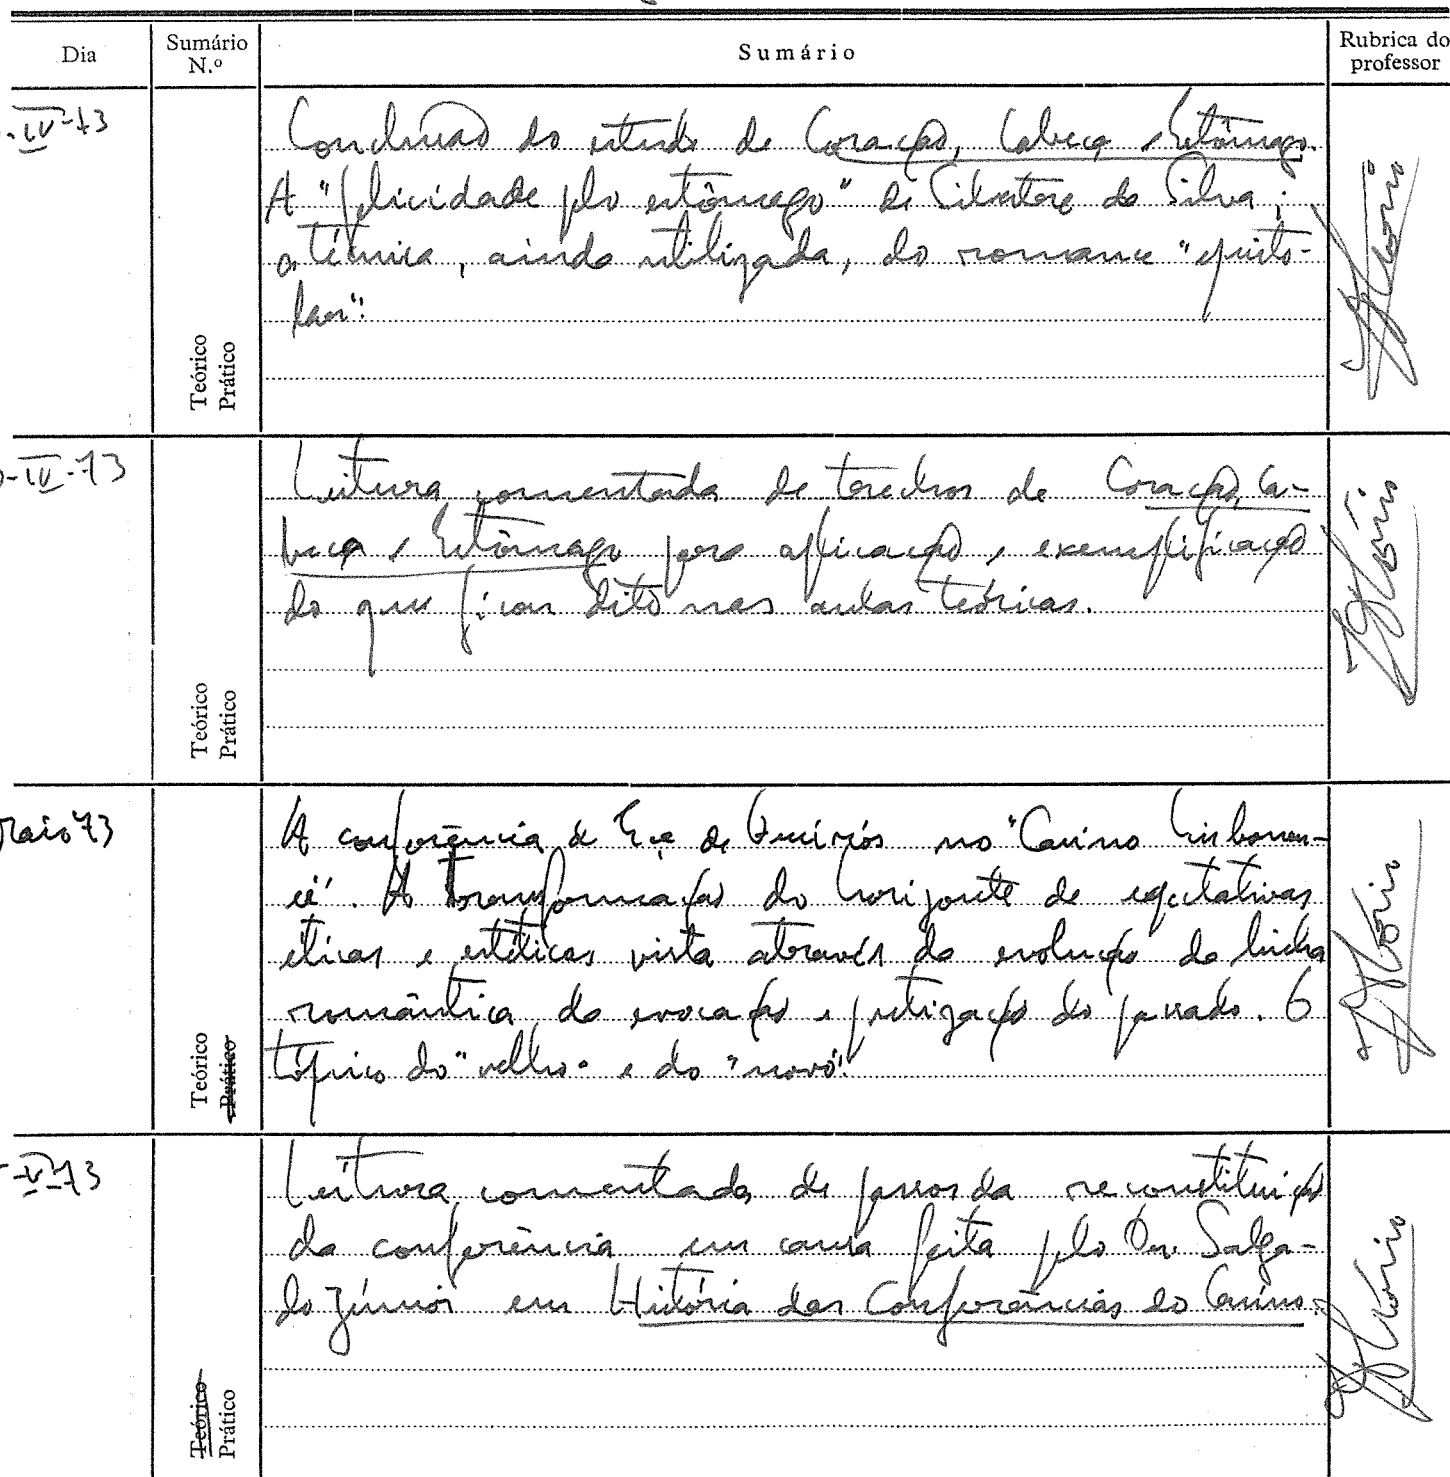 Dia Sumário N.º Sumário Rubrica do professor
-IV-73
Conclusão do estudo de Coração, Cabeça e Estômago.
A "felicidade pelo estômago" de Silvestre da Silva;
a técnica, ainda utilizada, do romance "episto-
lar".
Teórico
Prático
-IV-73
Leitura comentada de trechos de Coração, Ca-
beça e Estômago para aplicação e exemplificação
do que ficou dito nas aulas teóricas.
Teórico
Prático
Maio 73
A conferência de Eça de Queirós no "Casino Lisbonen-
se". A transformação do horizonte de expectativas
éticas e estéticas vista através da evolução da linha
romântica da evocação e poetização do passado. O
tópico do "velho" e do "novo".
Teórico
Prático
-V-73
Leitura comentada de passos da reconstituição
da conferência em causa feita pelo Dr. Salga-
do Júnior em História das Conferências do Casino.
Teórico
Prático